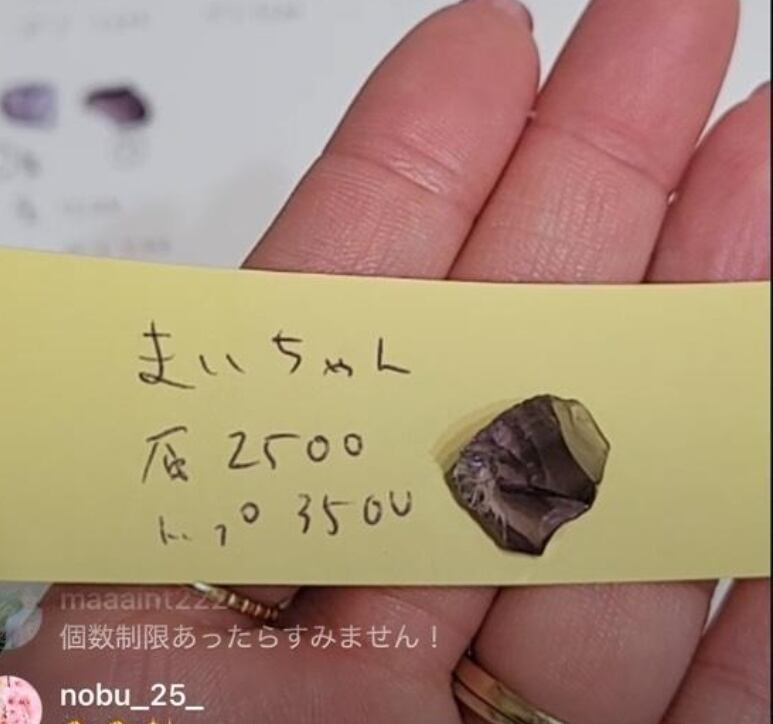 まいちゃん
原 2500
トップ 3500
maaaint222
個数制限あったらすみません！
nobu_25_